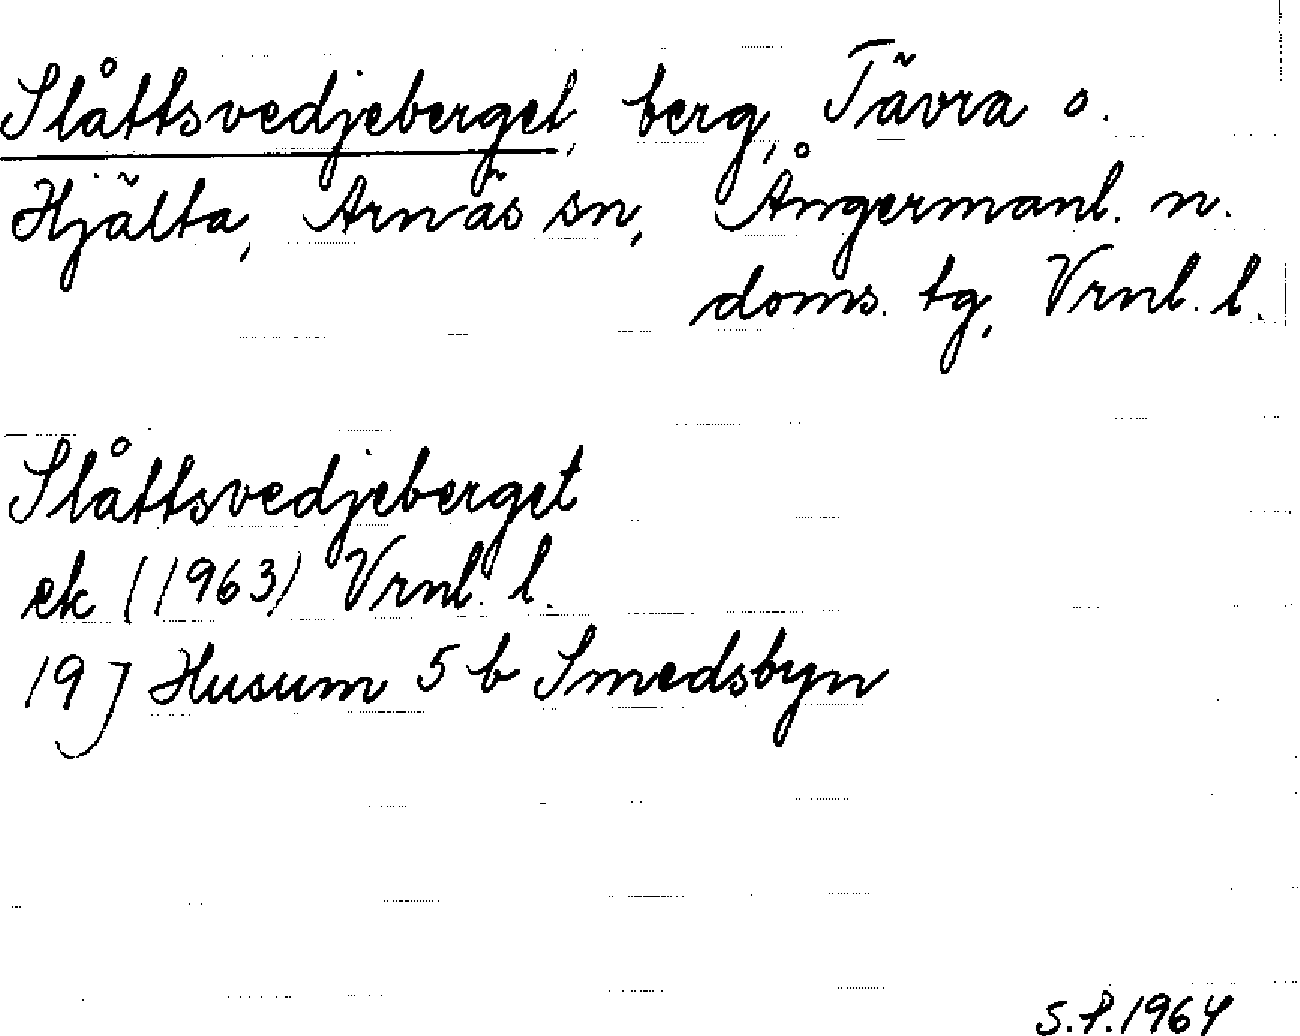 Slåttsvedjeberget, berg, Tävra o.
Hjälta, Arnäs sn, Ångermanl. n.
doms. tg, Vrnl. l.
Slåttsvedjeberget
ek (1963) Vrnl. l.
19 J Husum 5 b Smedsbyn
S.P.1964